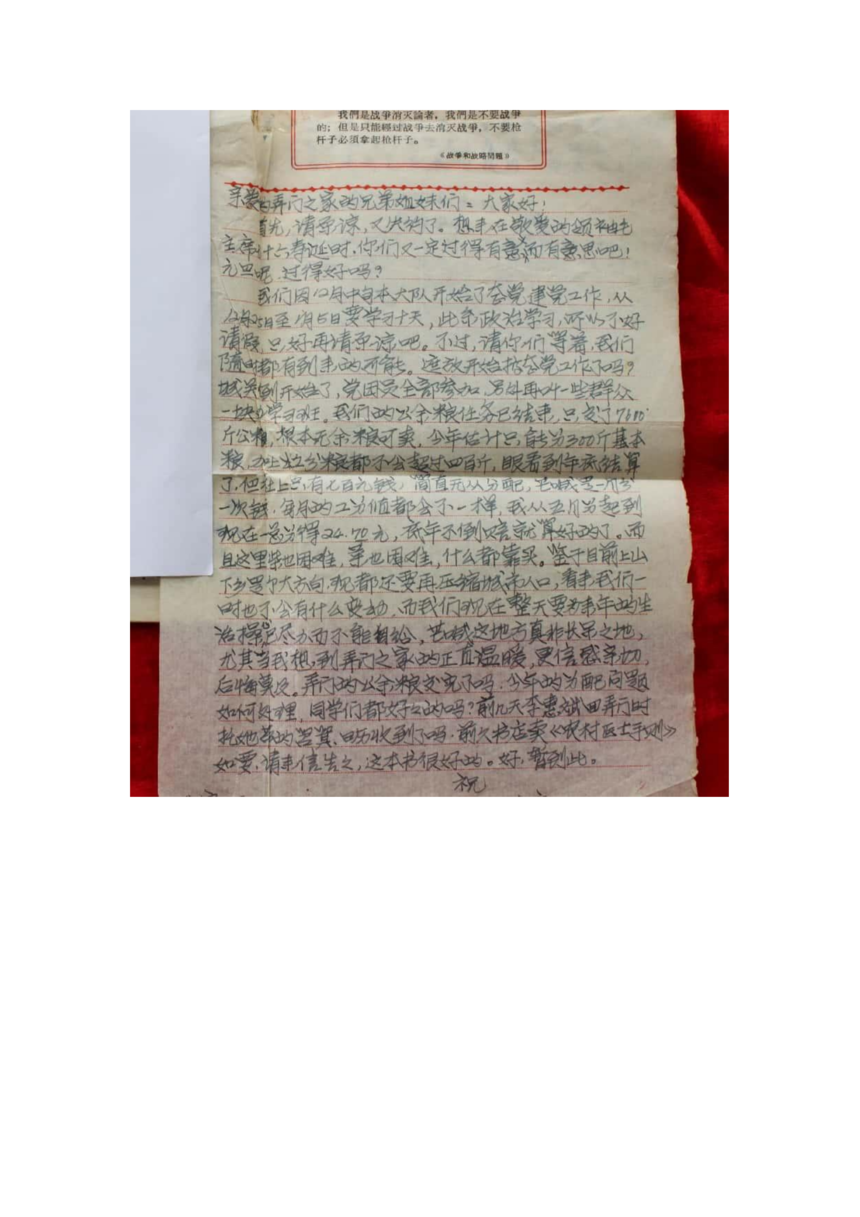 我們是战爭消灭論者，我們是不要战爭
的；但是只能經过战爭去消灭战爭，不要枪
杆子必須拿起枪杆子。
《战爭和战略問題》
亲爱的弄门之家的兄弟姐妹们：大家好！
首先，请原谅，又失约了。想来在敬爱的领袖毛
主席 十六寿诞时，你们又一定过得有意而有意思吧！
元旦呢，过得好吗？
我们因12月中旬本大队开始了整党建党工作，从
12月25日至1月5日要学习十天，此系政治学习，所以不好
请假，只好再请原谅吧。不过，请你们等着，我们
随时都有到来的可能。 开始搞整党工作了吗？
城关 到开始了，党团员全部参加，另外再叫一些群众
一块办学习班。我们的公余粮任务已结束，只交了7600
斤公粮，根本无余粮可卖，今年估计只能分300斤基本
粮，加上工分粮都不会超过四百斤，眼看到年底结算
了，但社上只有七百元钱，简直无从分配， 是一月分
一次钱，每月的工分值都会不一样，我从五月分起到
现在一总分得24.70元，底年不倒 就算好的了。而
且这里柴也困难，菜也困难，什么都靠买。鉴于目前上山
下乡是个大方向，现都还要再压缩城市人口，看来我们一
时也不会有什么变动，而我们现在整天要为来年的生
活操 尽力而不能自给， 这地方真非长呆之地，
尤其当我想到弄门之家的 温暖，更倍感亲切，
后悔莫及。弄门的公余粮交完了吗，今年的分配问题
如何处理，同学们都好 的吗？前几天李惠 回弄门时
托她带的 ， 收到了吗，前久书店卖《农村医士手册》
如要，请来信告之，这本书很好的。好，暂到此。
祝